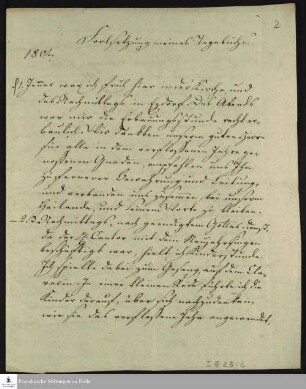 2
Fortsetzung meines Tagebuchs.
180
d. 1. Jenner war ich früh hier in der Kirche, und
des Nachmittags in Ezdorf. Des Abends
war mir die Erbauungsstunde recht er-
baulich. Wir dankten unserm guten Herrn
für alle in dem verflossenen Jahre ge-
nossenen Gnaden, empfahlen uns Ihm
zu fernerer Bewahrung und Leitung,
und verbanden uns zusamen, bei unserm
Heilande, und seinem Worte zu bleiben.
— 2. Nachmittags, nach geendigtem Gottesdienst,
da der H. Cantor mit dem Neujahrsingen
beschäftigt war, hielt ich Kinderstunde.
Ich spielte dabei zum Gesang auf dem Cla-
vier. In einer kleinen Rede führte ich die
Kinder darauf, über sich nachzudenken,
wie sie das verflossene Jahr angewendet,
Franckesche Stiftungen zu Halle